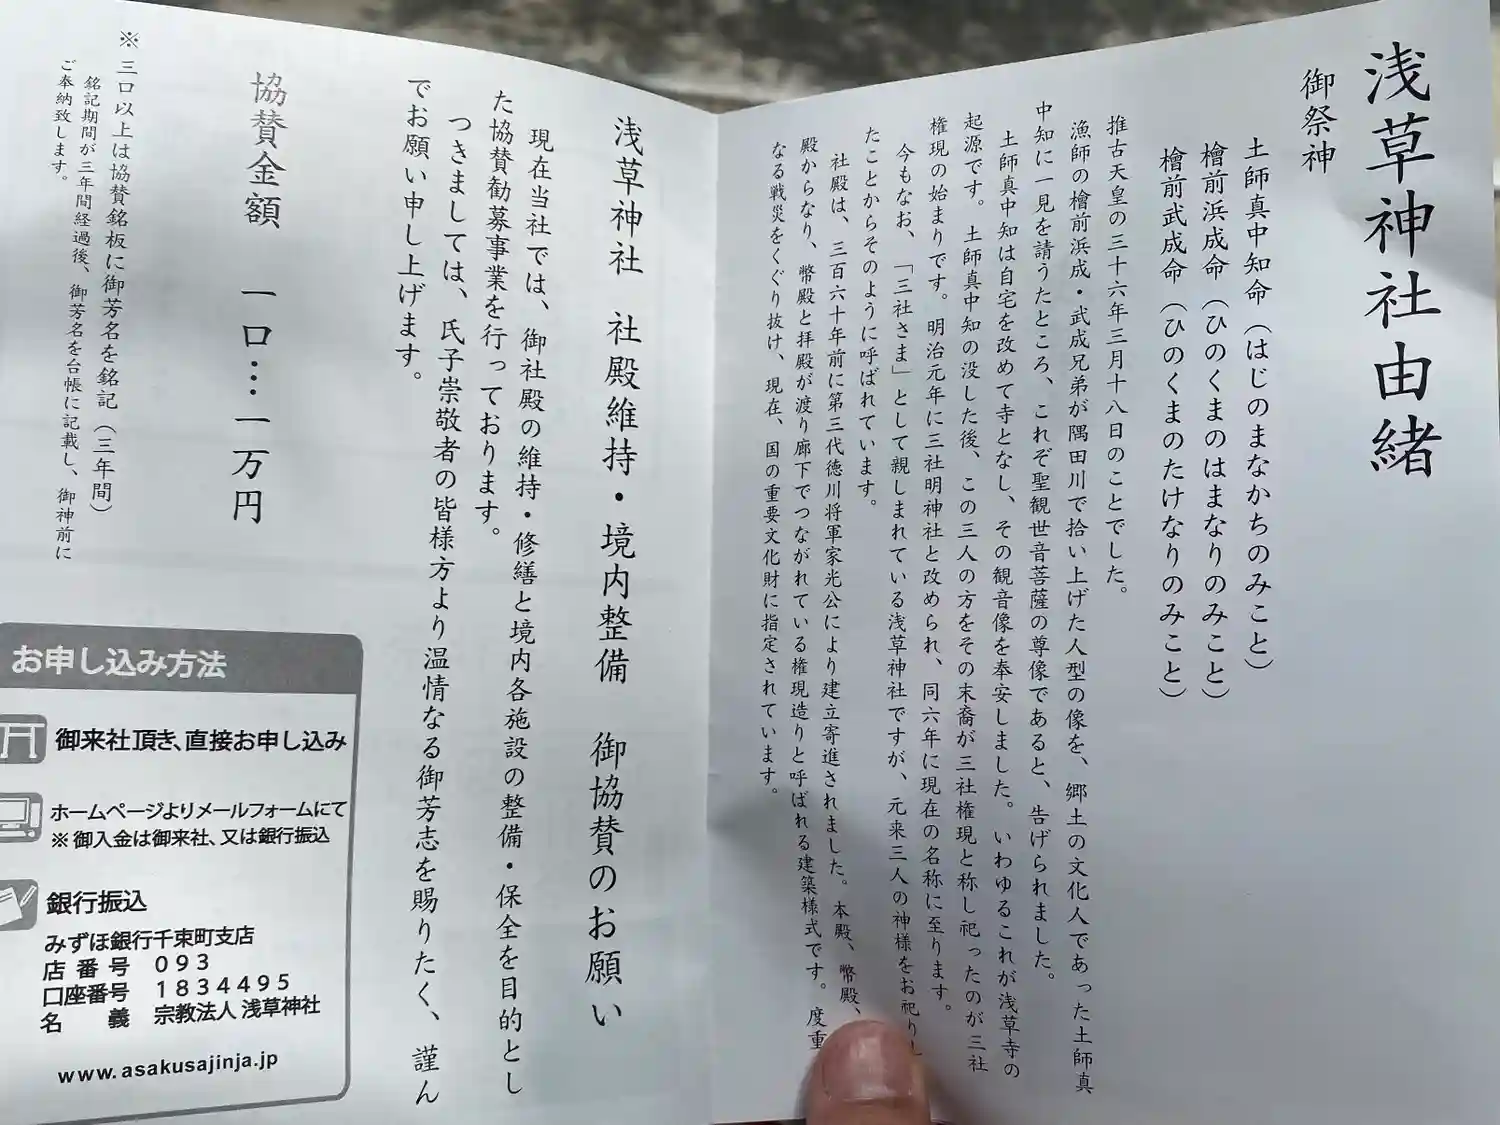 浅草神社由緒
御祭神
土師真中知命（はじのまなかちのみこと）
檜前浜成命（ひのくまのはまなりのみこと）
檜前武成命（ひのくまのたけなりのみこと）
推古天皇の三十六年三月十八日のことでした。
漁師の檜前浜成・武成兄弟が隅田川で拾い上げた人型の像を、郷土の文化人であった土師真
中知に一見を請うたところ、これぞ聖観世音菩薩の尊像であると、告げられました。
土師真中知は自宅を改めて寺となし、その観音像を奉安しました。いわゆるこれが浅草寺の
起源です。土師真中知の没した後、この三人の方をその末裔が三社権現と称し祀ったのが三社
権現の始まりです。明治元年に三社明神社と改められ、同六年に現在の名称に至ります。
今もなお、「三社さま」として親しまれている浅草神社ですが、元来三人の神様をお祀りし
たことからそのように呼ばれています。
社殿は、三百六十年前に第三代徳川将軍家光公により建立寄進されました。本殿、幣殿、
殿からなり、幣殿と拝殿が渡り廊下でつながれている権現造りと呼ばれる建築様式です。度重
なる戦災をくぐり抜け、現在、国の重要文化財に指定されています。
浅草神社 社殿維持・境内整備 御協賛のお願い
現在当社では、御社殿の維持・修繕と境内各施設の整備・保全を目的とし
た協賛勧募事業を行っております。
つきましては、氏子崇敬者の皆様方より温情なる御芳志を賜りたく、謹ん
でお願い申し上げます。
協賛金額 一口…一万円
※三口以上は協賛銘板に御芳名を銘記（三年間）
銘記期間が三年間経過後、御芳名を台帳に記載し、御神前に
ご奉納致します。
お申し込み方法
御来社頂き、直接お申し込み
ホームページよりメールフォームにて
※御入金は御来社、又は銀行振込
銀行振込
みずほ銀行千束町支店
店番号 093
口座番号 1834495
名義 宗教法人 浅草神社
www.asakusajinja.jp